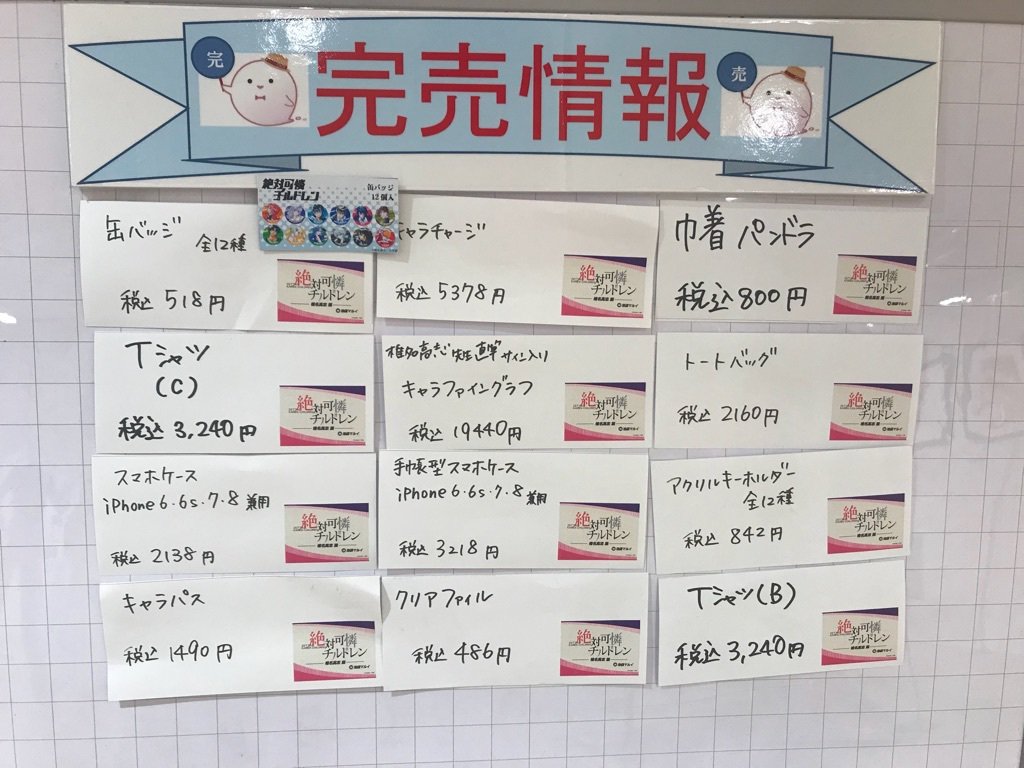 完
完売情報
売
絶対可憐
チルドレン
缶バッジ
12個入
缶バッジ
全12種
税込 518円
絶対可憐
チルドレン
キャラチャージ
税込 5378円
絶対可憐
チルドレン
巾着 パンドラ
税込 800円
絶対可憐
チルドレン
Tシャツ
(C)
税込 3,240円
絶対可憐
チルドレン
椎名高志 先生直筆サイン入り
キャラファイングラフ
税込 19440円
絶対可憐
チルドレン
トートバッグ
税込 2160円
絶対可憐
チルドレン
スマホケース
iPhone6・6s・7・8 兼用
税込 2138円
絶対可憐
チルドレン
手帳型スマホケース
iPhone6・6s・7・8 兼用
税込 3218円
絶対可憐
チルドレン
アクリルキーホルダー
全12種
税込 842円
絶対可憐
チルドレン
キャラパス
税込 1490円
絶対可憐
チルドレン
クリアファイル
税込 486円
絶対可憐
チルドレン
Tシャツ(B)
税込 3,240円
絶対可憐
チルドレン